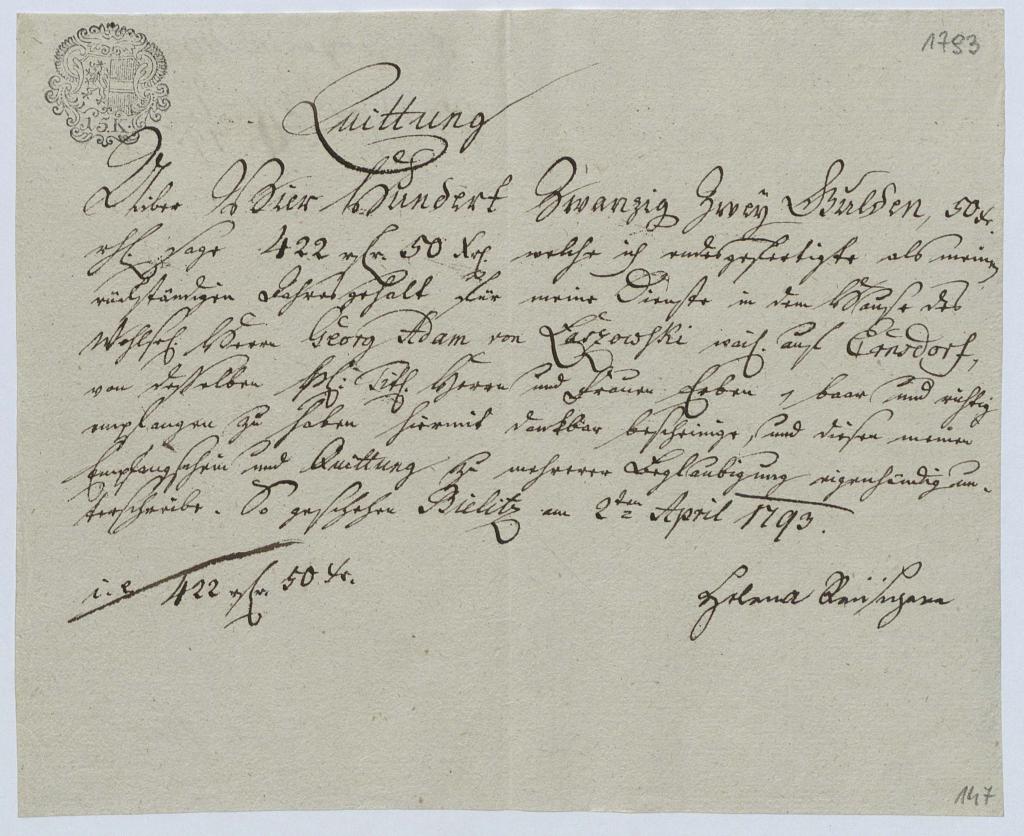 1793
15 K.
Quittung
Uiber Vier Hundert Zwanzig Zwey Gulden, 50 Xr.
rhl. sage 422 rhr. 50 Xr. welche ich endesgefertigte als meinen
rückständigen Jahresgehalt für meine Dienste in dem Hause des
Wohlsel. Herrn Georg Adam von Laszowski auf Ernsdorf,
von desselben Tit. Herrn und Frauen Erben, baar und richtig
empfangen zu haben hiermit dankbar bescheinige, und diesen meinen
Empfangschein und Quittung zu mehrerer Beglaubigung eigenhändig un-
terschreibe. So geschehen Bielitz am 2ten April 1793.
i. e. 422 rhr. 50 Xr.
Helena
147